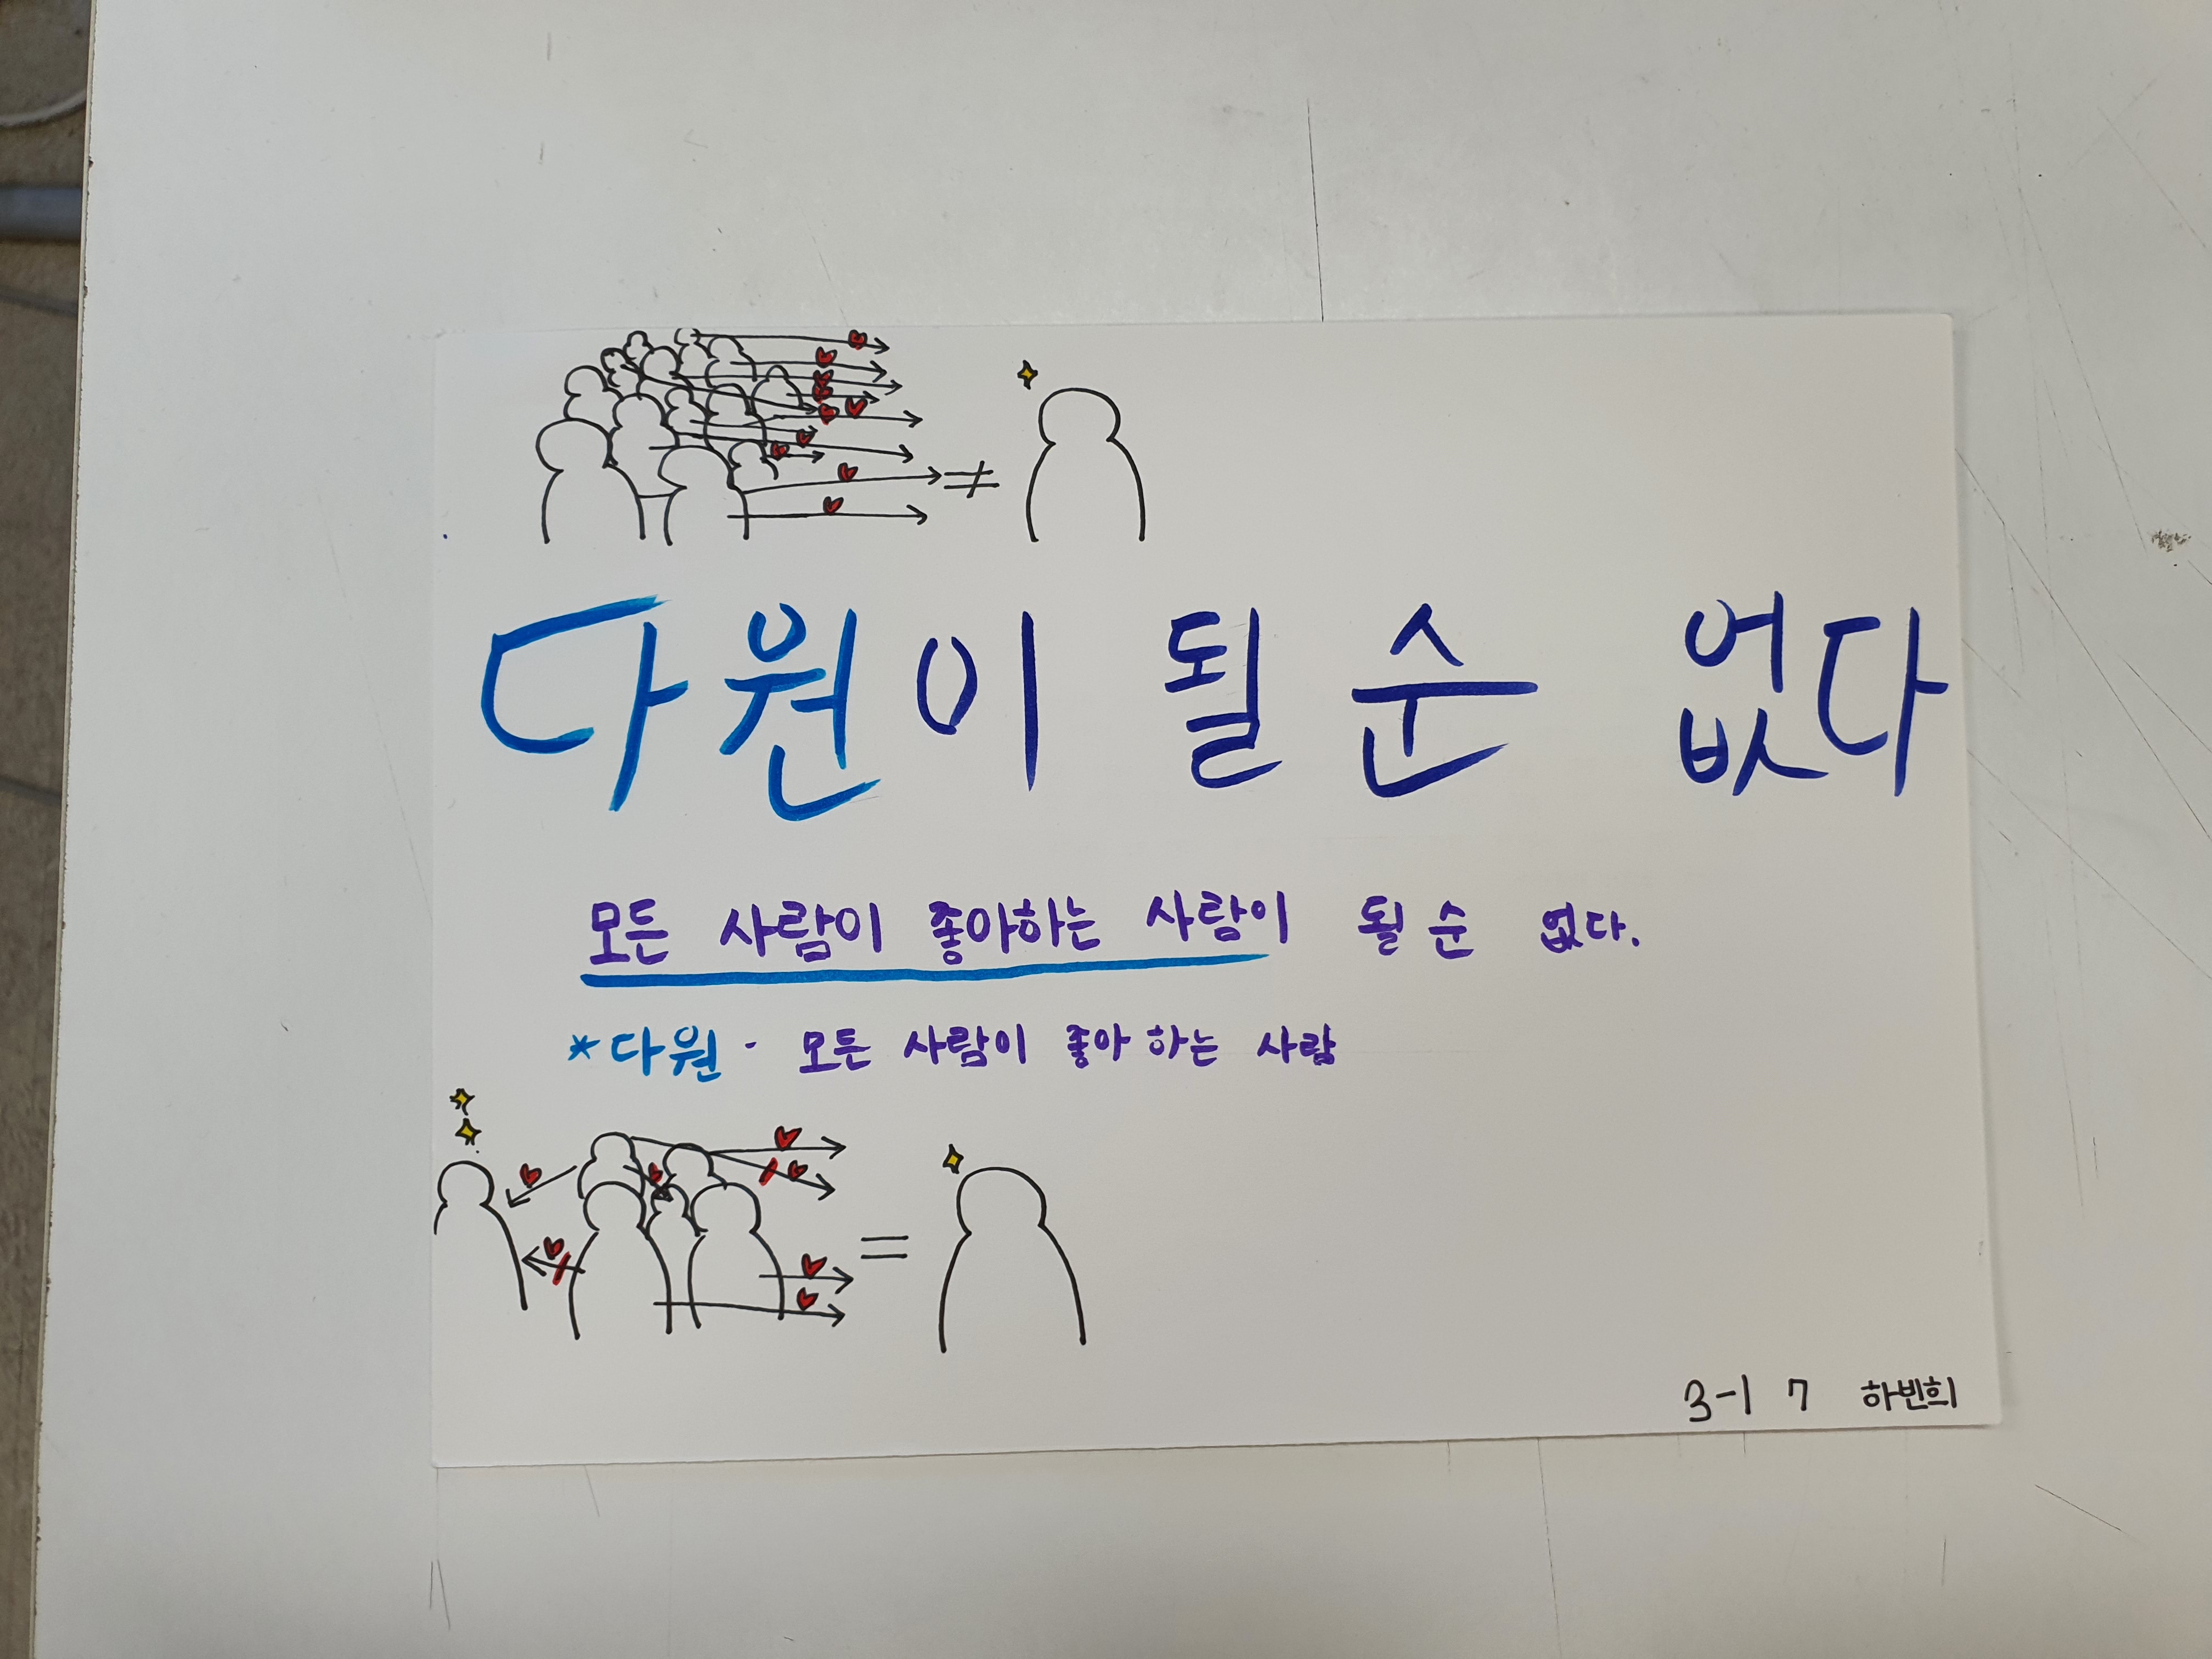 ≠
다원이 될 순 없다
모든 사람이 좋아하는 사람이 될 순 없다.
*다원 - 모든 사람이 좋아 하는 사람
=
3-1 7 하빈희